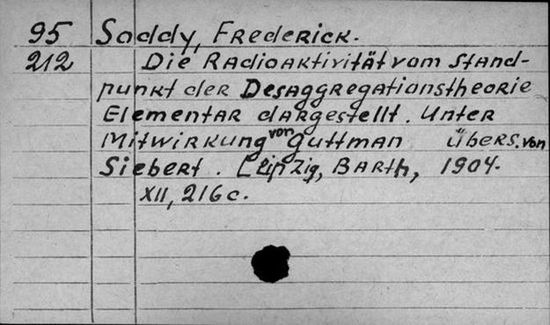 95 Soddy, Frederick.
212 Die Radioaktivität vom Stand-
punkt der Desaggregationstheorie
Elementar dargestellt. Unter
Mitwirkung von Guttman Übers. von
Siebert. Leipzig, Barth, 1904.
XII, 216 c.